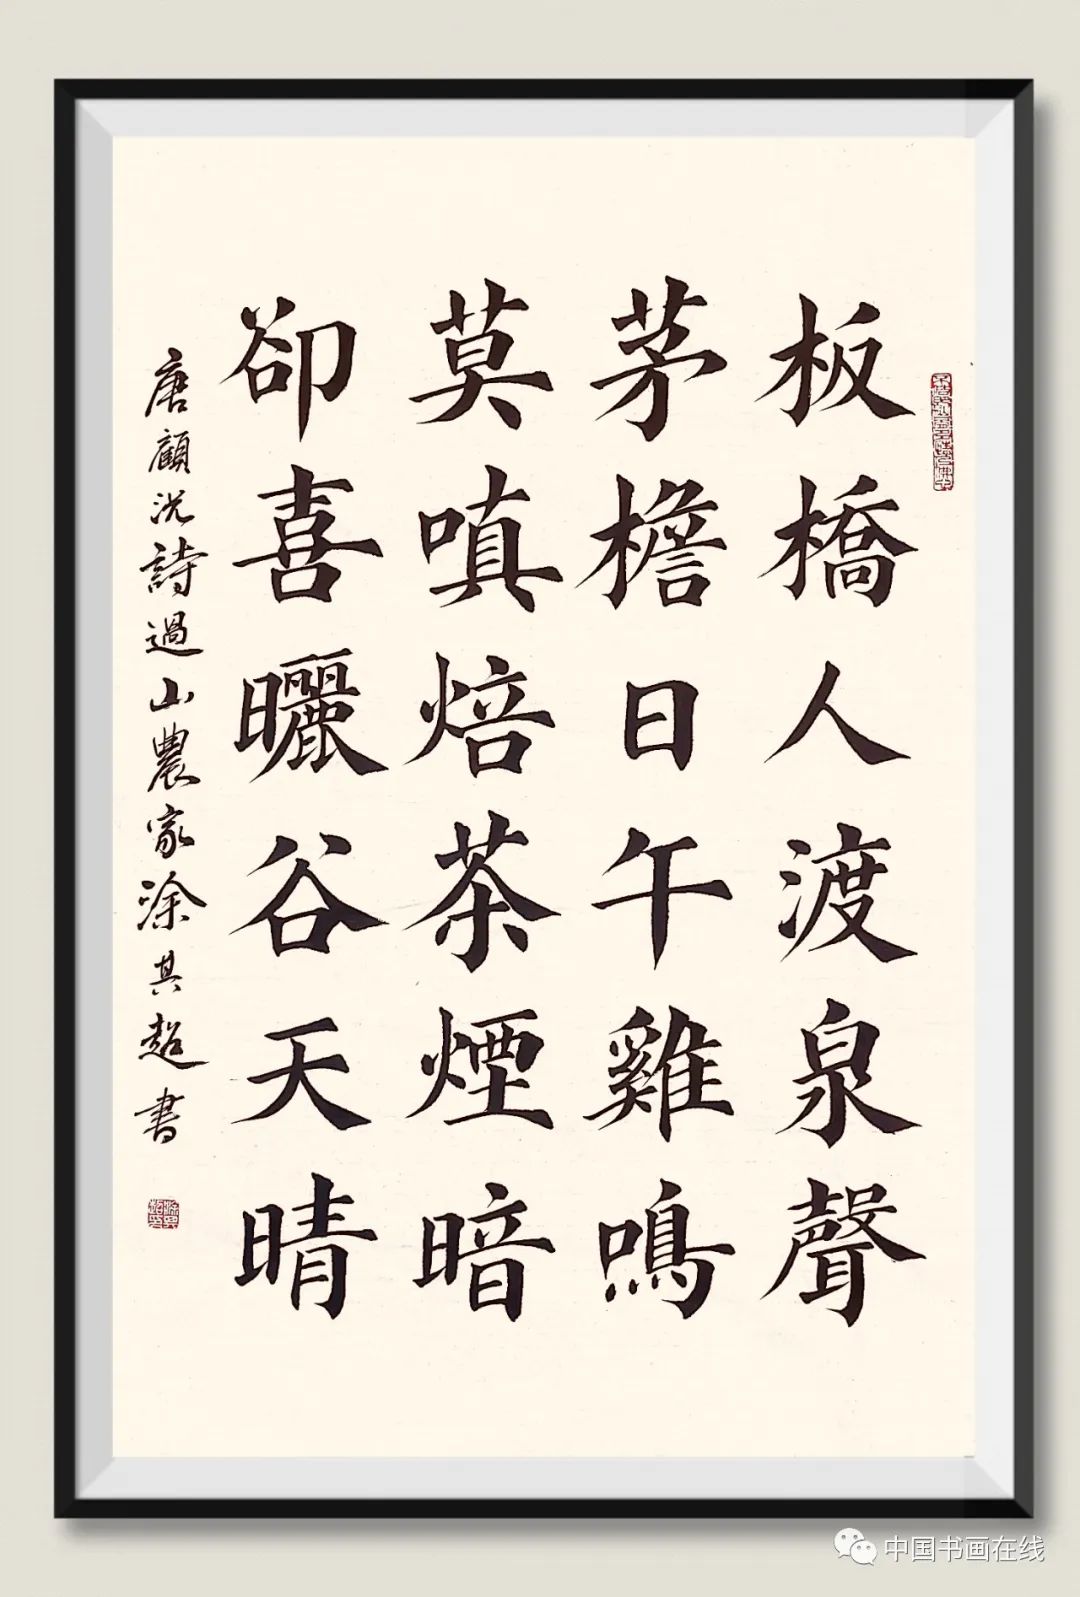 板橋人渡泉聲
茅檐日午雞鳴
莫嗔焙茶煙暗
卻喜曬谷天晴
唐顧況詩過山農家涂其超書
中国书画在线